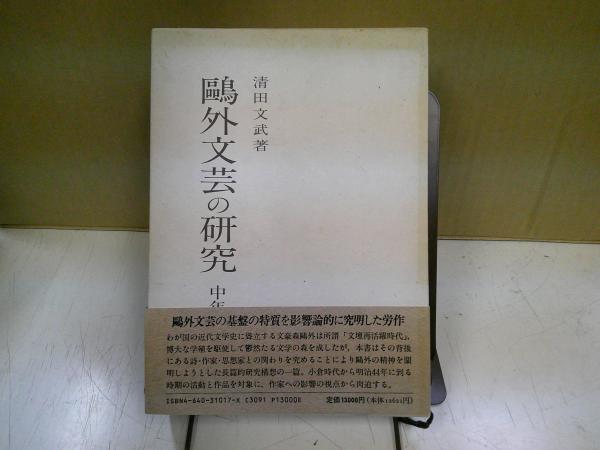 清田文武著
鷗外文芸の研究 中年
鷗外文芸の基盤の特質を影響論的に究明した労作
わが国の近代文学史に聳立する文豪森鷗外は所謂「文壇再活躍時代」、
博大な学殖を駆使して鬱然たる文学の森を成したが、本書はその背後
にある詩・作家・思想家との関わりを究めることにより鷗外の精神を闡
明しようとした長篇的研究構想の一篇。小倉時代から明治44年に到る
時期の活動と作品を対象に、作家への影響の視点から肉迫する。
ISBN4-640-31017-X C3091 P13000E
定価13000円(本体12621円)